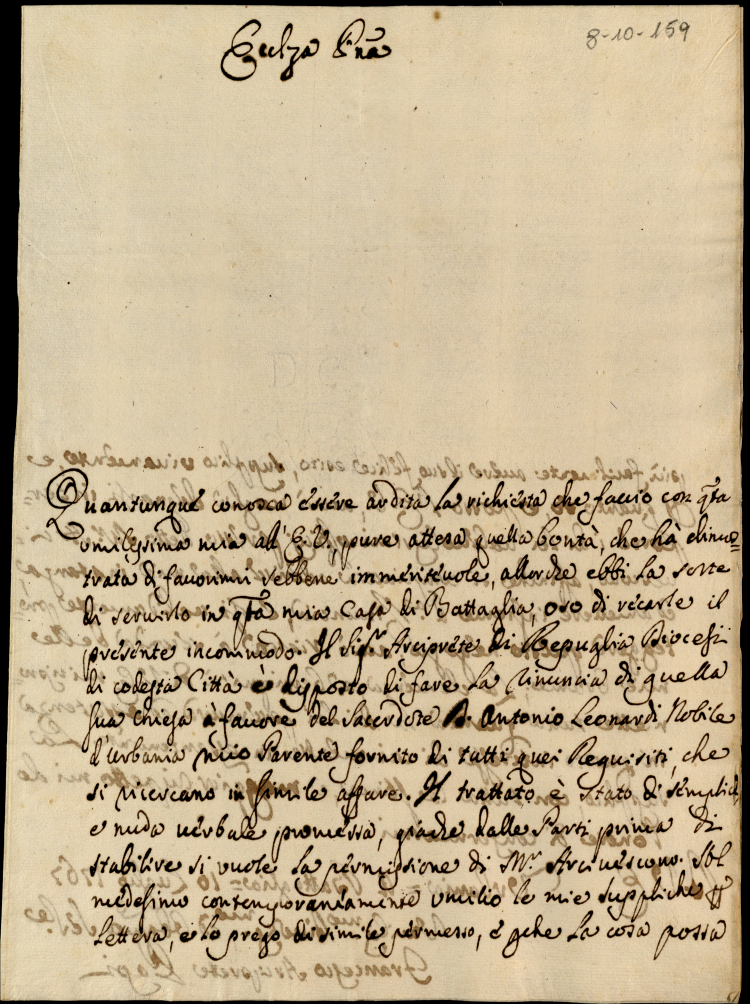 8-10-159
Ecclza Pña
Quantunque conosca essere ardita la richiesta che faccio con q̃ta
umilissima mia all'E. V., pure attesa quella bontà, che hà dimos=
trata di favorirmi sebbene immeritevole, allorche ebbi la sorte
di servirlo in q̃ta mia Casa di Battaglia, oso di recarle il
presente incommodo. Il Sig.r Arciprete di Repuglia Diocesi
di codesta Città è disposto di fare la rinuncia di quella
sua chiesa à favore del Sacerdote D. Antonio Leonardi Nobile
d'Urbania mio Parente fornito di tutti quei Requisiti, che
si ricercano in simile affare. Il trattato è stato di semplice,
e nuda verbale promessa, giache dalle Parti prima di
stabilire si vuole la permissione di M.r Arcivescovo. Sol
medesimo contemporaneamente umilio le mie suppliche p
Lettera, e lo prego di simile permesso, e pche la cosa possa